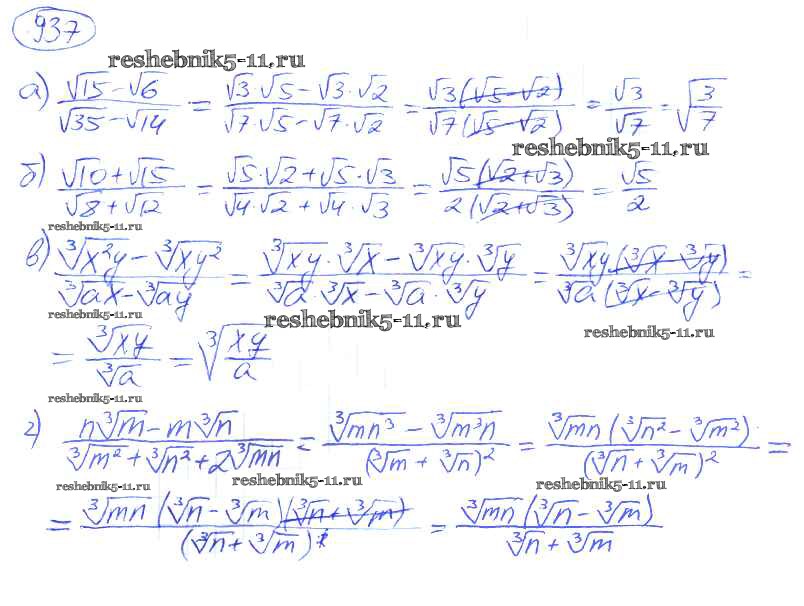 937
reshebnik5-11.ru
а) (√15 - √6)/(√35 - √14) = (√3·√5 - √3·√2)/(√7·√5 - √7·√2) = (√3(√5 - √2))/(√7(√5 - √2)) = √3/√7 = √(3/7)
reshebnik5-11.ru
б) (√10 + √15)/(√8 + √12) = (√5·√2 + √5·√3)/(√4·√2 + √4·√3) = (√5(√2 + √3))/(2(√2 + √3)) = √5/2
reshebnik5-11.ru
в) (∛(x²y) - ∛(xy²))/(∛(ax) - ∛(ay)) = (∛(xy)·∛x - ∛(xy)·∛y)/(∛a·∛x - ∛a·∛y) = (∛(xy)(∛x - ∛y))/(∛a(∛x - ∛y)) =
reshebnik5-11.ru reshebnik5-11.ru reshebnik5-11.ru
= ∛(xy)/∛a = ∛(xy/a)
reshebnik5-11.ru
г) (n∛m - m∛n)/(∛(m²) + ∛(n²) + 2∛(mn)) = (∛(mn³) - ∛(m³n))/(∛m + ∛n)² = (∛(mn)(∛(n²) - ∛(m²)))/(∛n + ∛m)² =
reshebnik5-11.ru reshebnik5-11.ru reshebnik5-11.ru
= (∛(mn)(∛n - ∛m)(∛n + ∛m))/(∛n + ∛m)² = (∛(mn)(∛n - ∛m))/(∛n + ∛m)